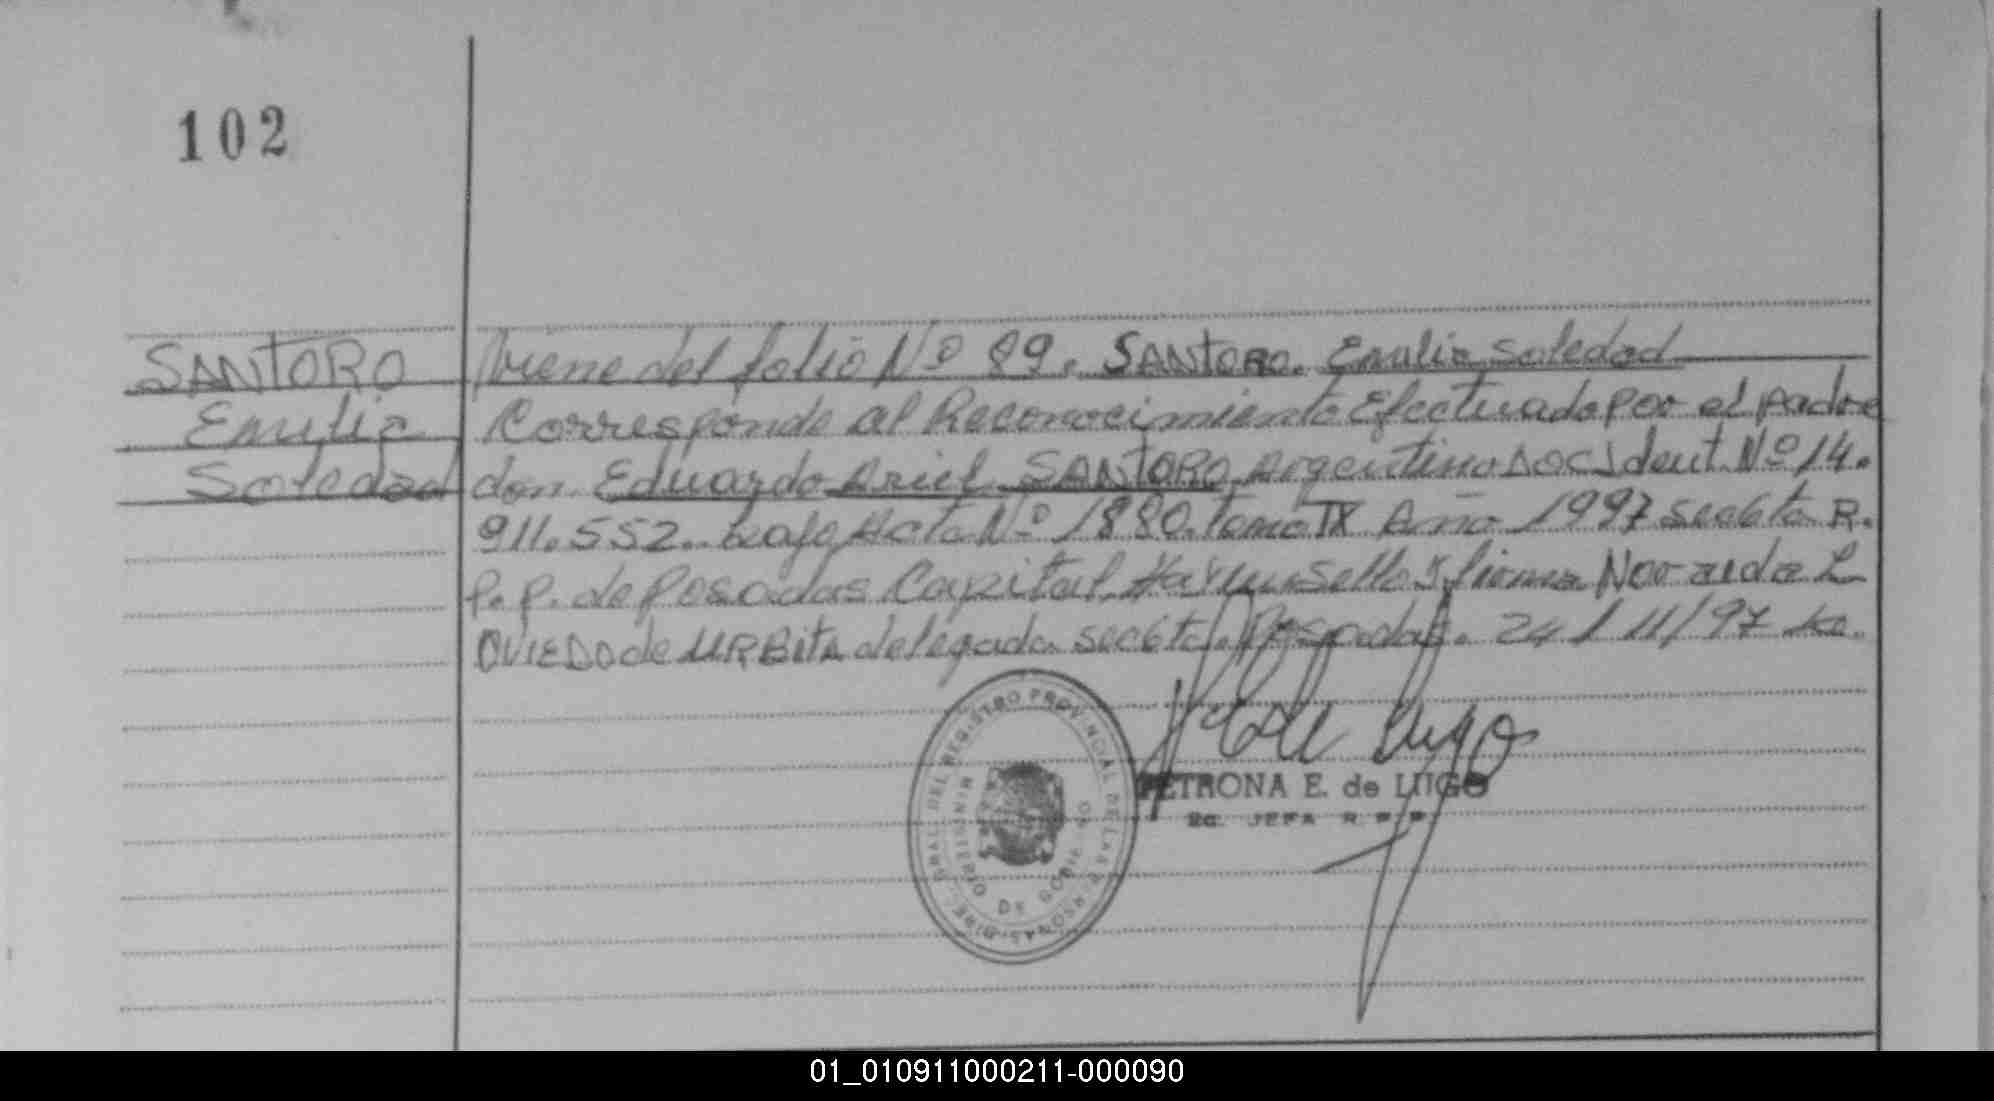 102
SANTORO
Emilia
Soledad
Viene del folio Nº 89. SANTORO. Emilia Soledad
Corresponde al Reconocimiento Efectuado por el padre
don Eduardo Ariel SANTORO. Argentino Doc Ident. Nº 14.
911.552. bajo Acta Nº 1880. tomo IX Año 1997 R.
P.P. de Posadas Capital. Hay un Sello y firma L
OVIEDO de URBITA delegada Posadas. 24/11/97
DIREC. GRAL. DEL REGISTRO PROVINCIAL DE LAS PERSONAS
MINISTERIO DE GOBIERNO
PETRONA E. de LUGO
2a. JEFA R.P.P.
01_010911000211-000090